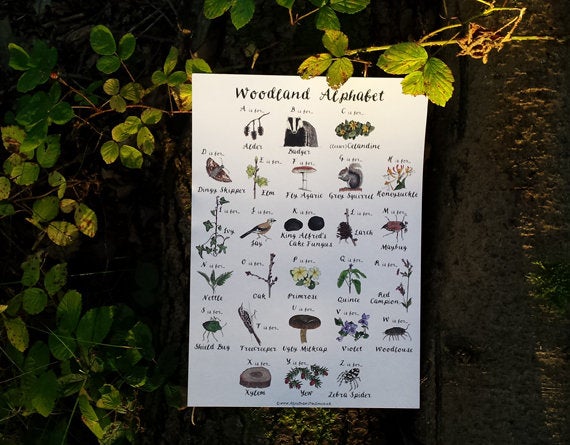 Woodland Alphabet
A is for... B is for... C is for...
Alder Badger (lesser) Celandine
D is for... E is for... F is for... G is for... H is for...
Dingy Skipper Elm Fly Agaric Grey Squirrel Honeysuckle
I is for... J is for... K is for... L is for... M is for...
Ivy Jay King Alfred's Cake Fungus Larch Maybug
N is for... O is for... P is for... Q is for... R is for...
Nettle Oak Primrose Quince Red Campion
S is for... T is for... U is for... V is for... W is for...
Shield Bug Treecreeper Ugly Milkcap Violet Woodlouse
X is for... Y is for... Z is for...
Xylem Yew Zebra Spider